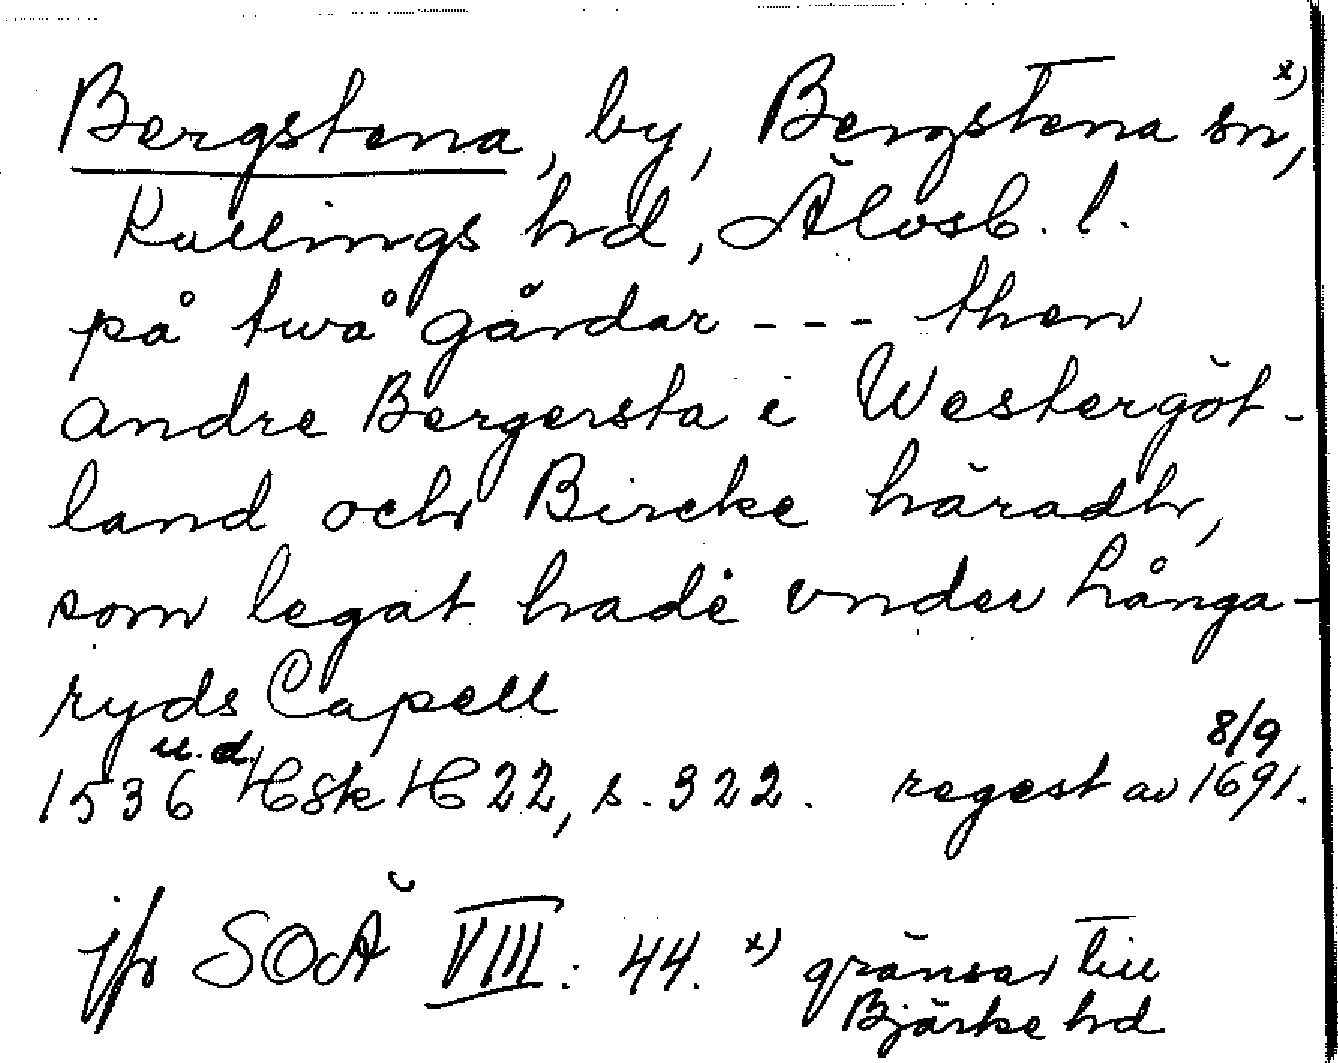 Bergstena, by, Bergstena sn, x)
Kullings hd, Älvsb. l.
på twå gårdar --- then
andre Bergersta i Westergöt-
land och Bircke häradh,
som legat hade vnder Långa-
ryds Capell
1536 u.d. HSk H 22, s. 322. regest av 8/9 1691.
jfr SOÄ VIII: 44. x) gränsar till
Bjärke hd